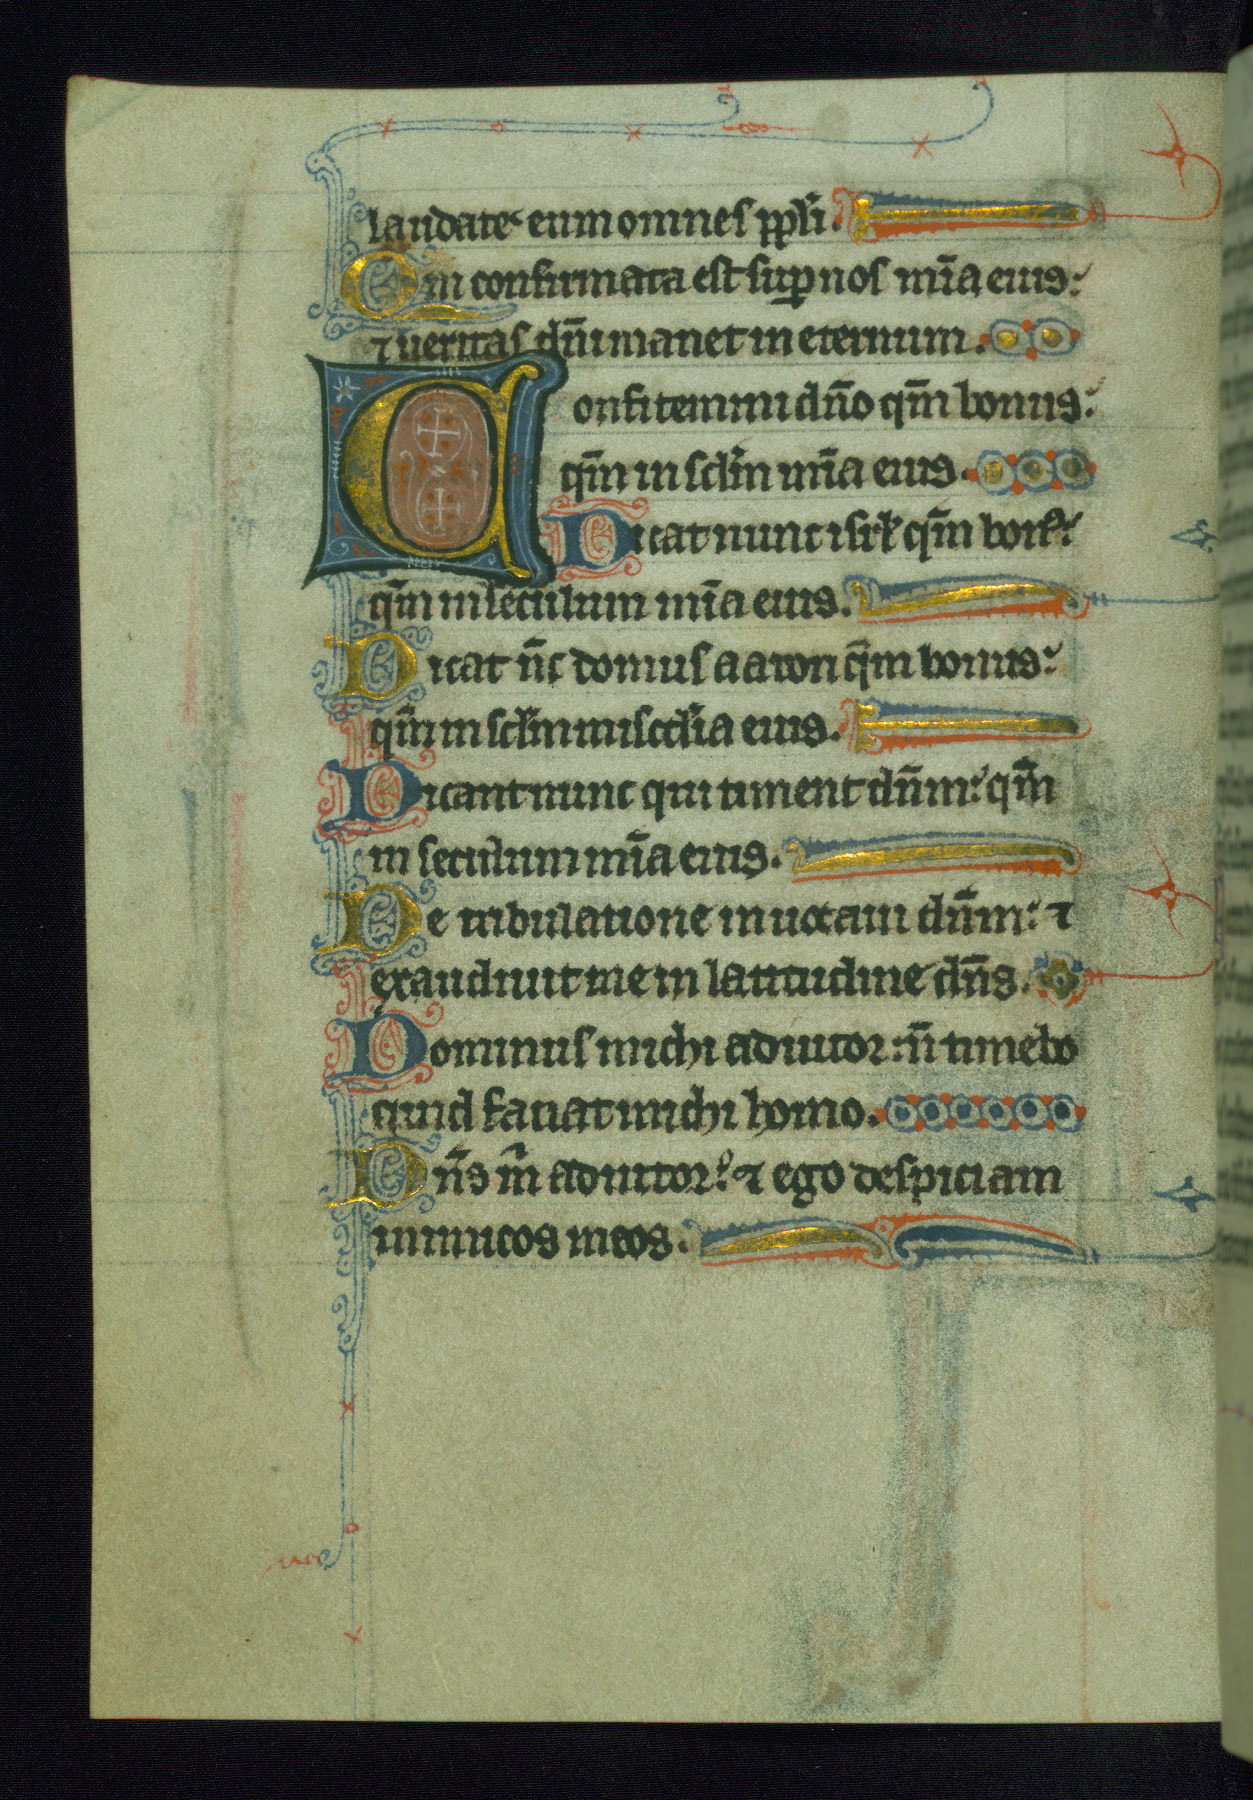 laudate eum omnes ppl̅i.
Qm̅ confirmata est sup̲ nos mı̅a eius:
⁊ ueritas dn̅i manet in eternum.
Confitemini dn̅o qm̅ bonus:
qm̅ in scl̅m mı̅a eius.
Dicat nunc isrl̅ qm̅ bon᷒:
qm̅ in seculum mı̅a eius.
Dicat nc̅ domus aaron qm̅ bonus:
qm̅ in scl̅m misc̅dia eius.
Dicant nunc qui timent dn̅m: qm̅
in seculum mı̅a eius.
De tribulatione inuocaui dn̅m: ⁊
exaudiuit me in latitudine dn̅s.
Dominus michi adiutor: n̅ timebo
quid faciat michi homo.
Dn̅s m̅ adiutor: ⁊ ego despiciam
inimicos meos.